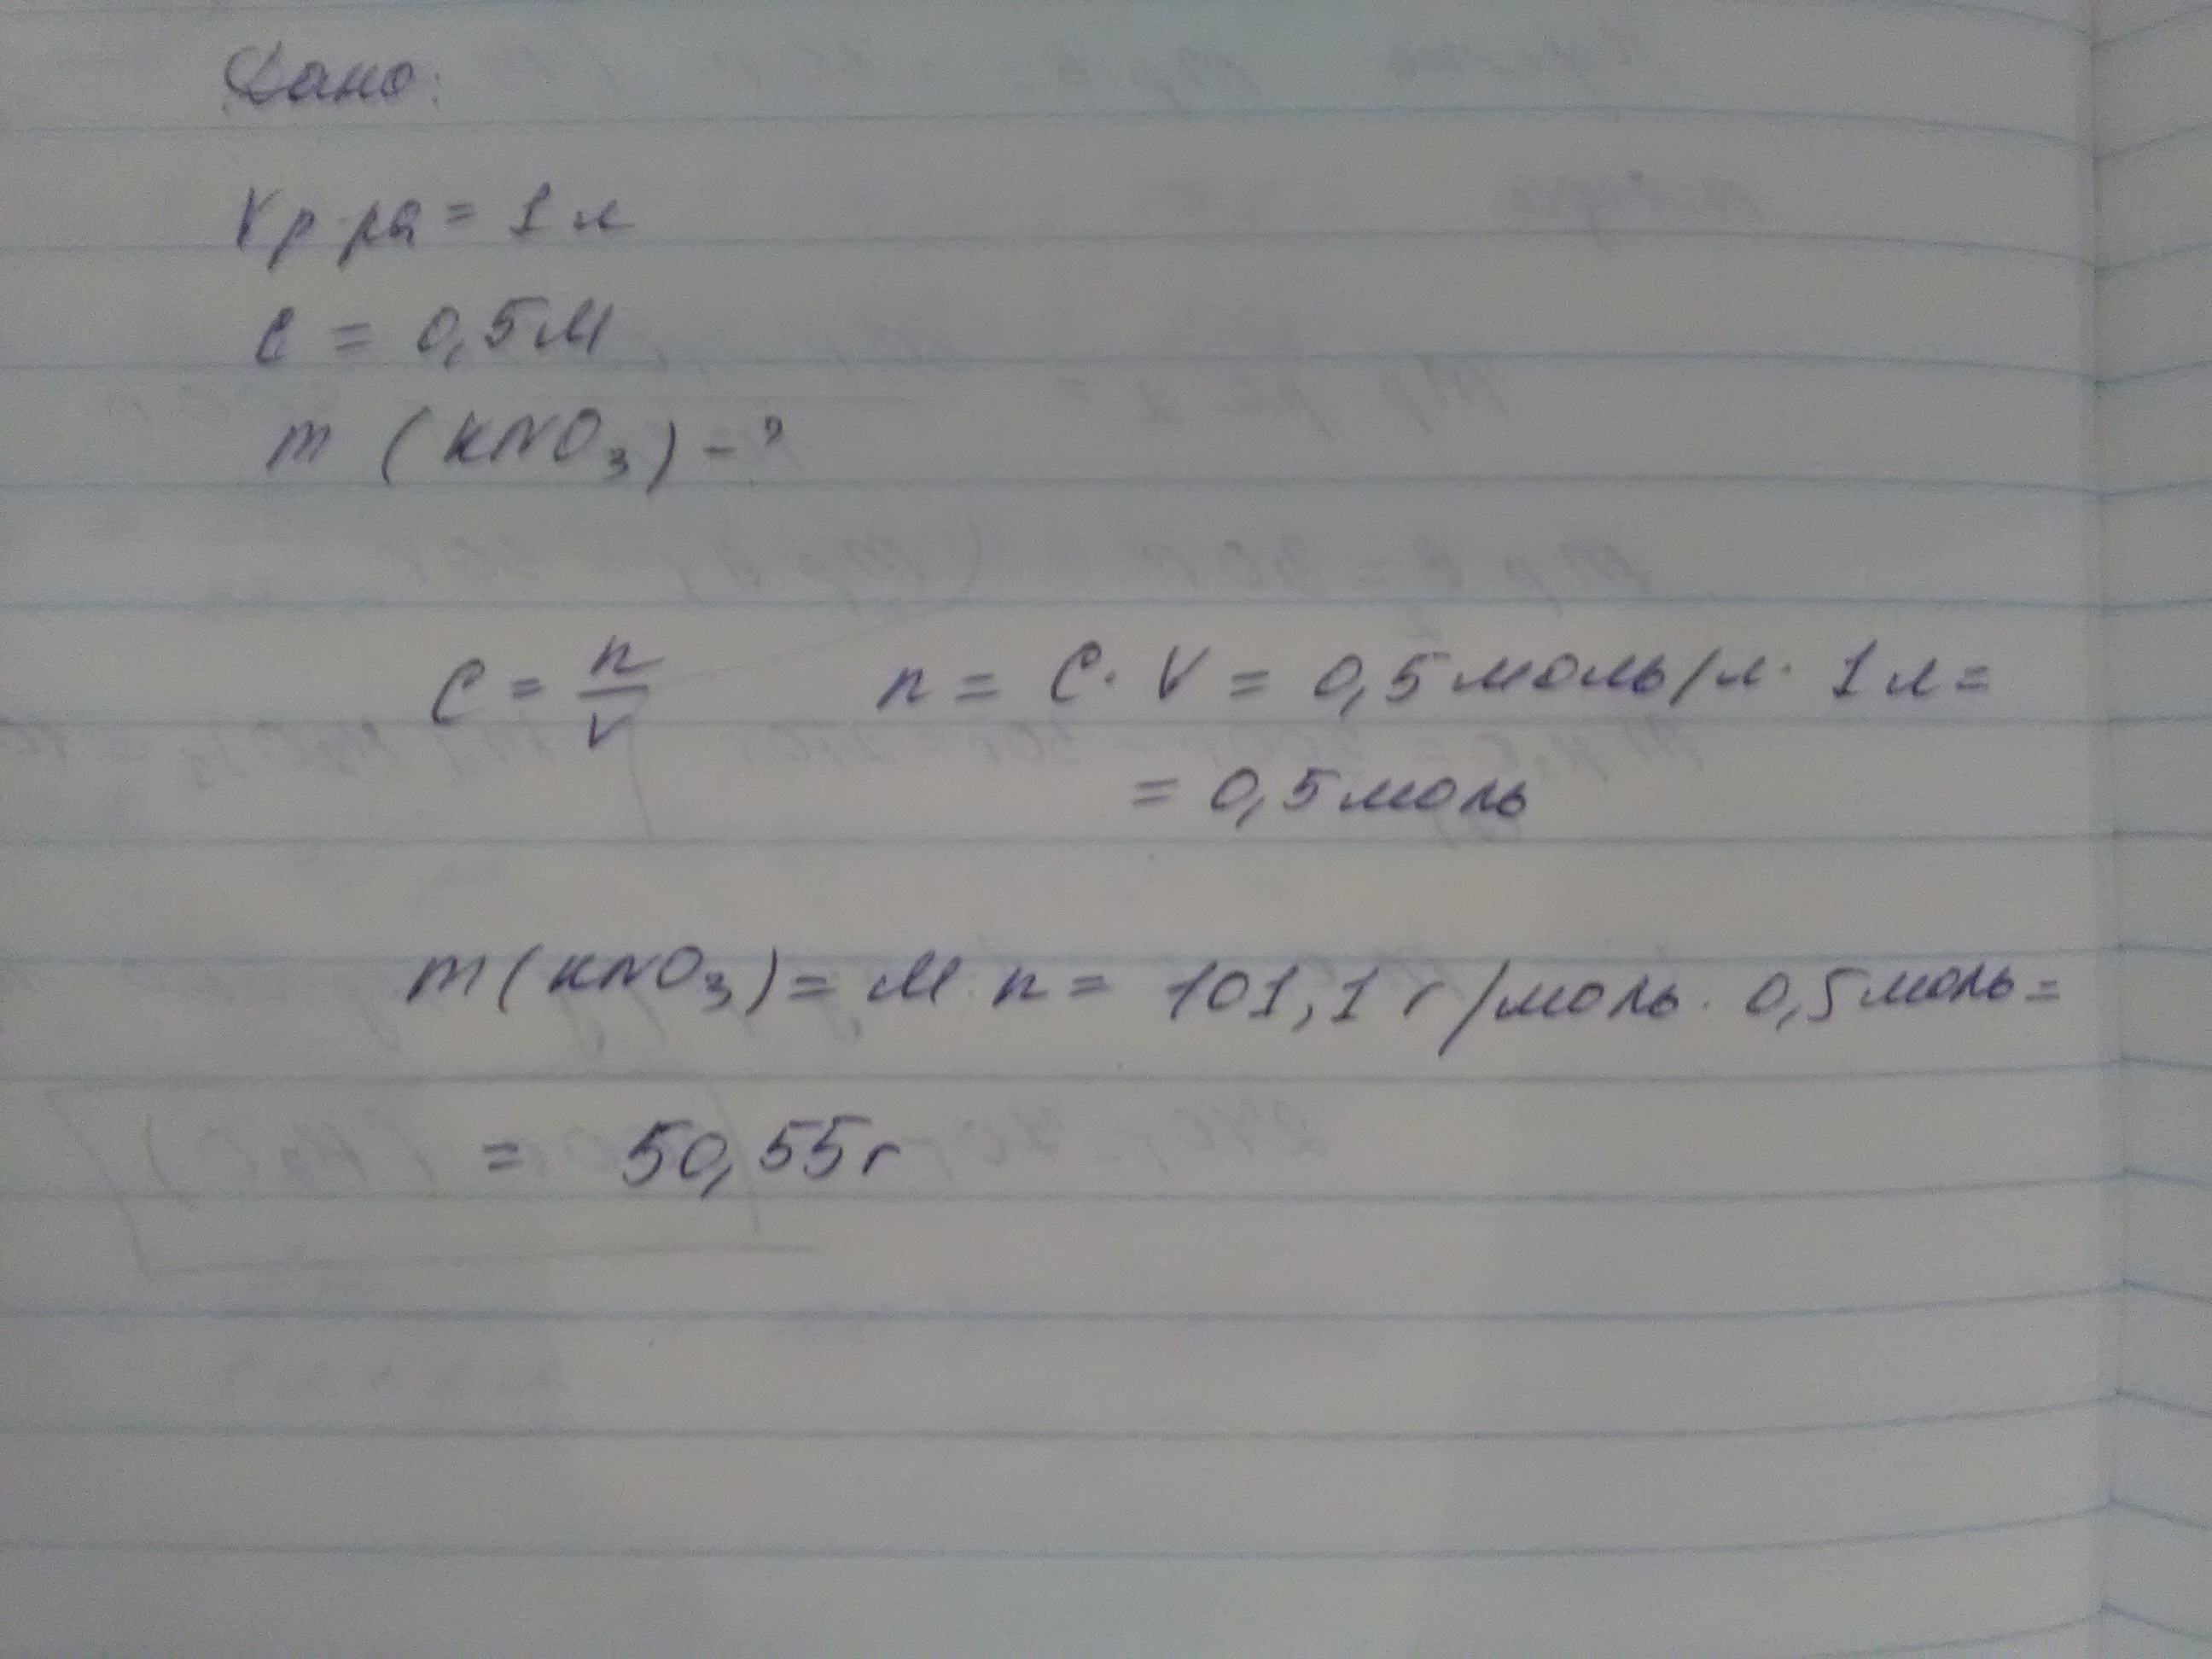 Дано:
Vр-ра = 1 л
C = 0,5 М
m (KNO₃) - ?
C = n/V n = C · V = 0,5 моль/л · 1 л =
= 0,5 моль
m (KNO₃) = M · n = 101,1 г/моль · 0,5 моль =
= 50,55 г